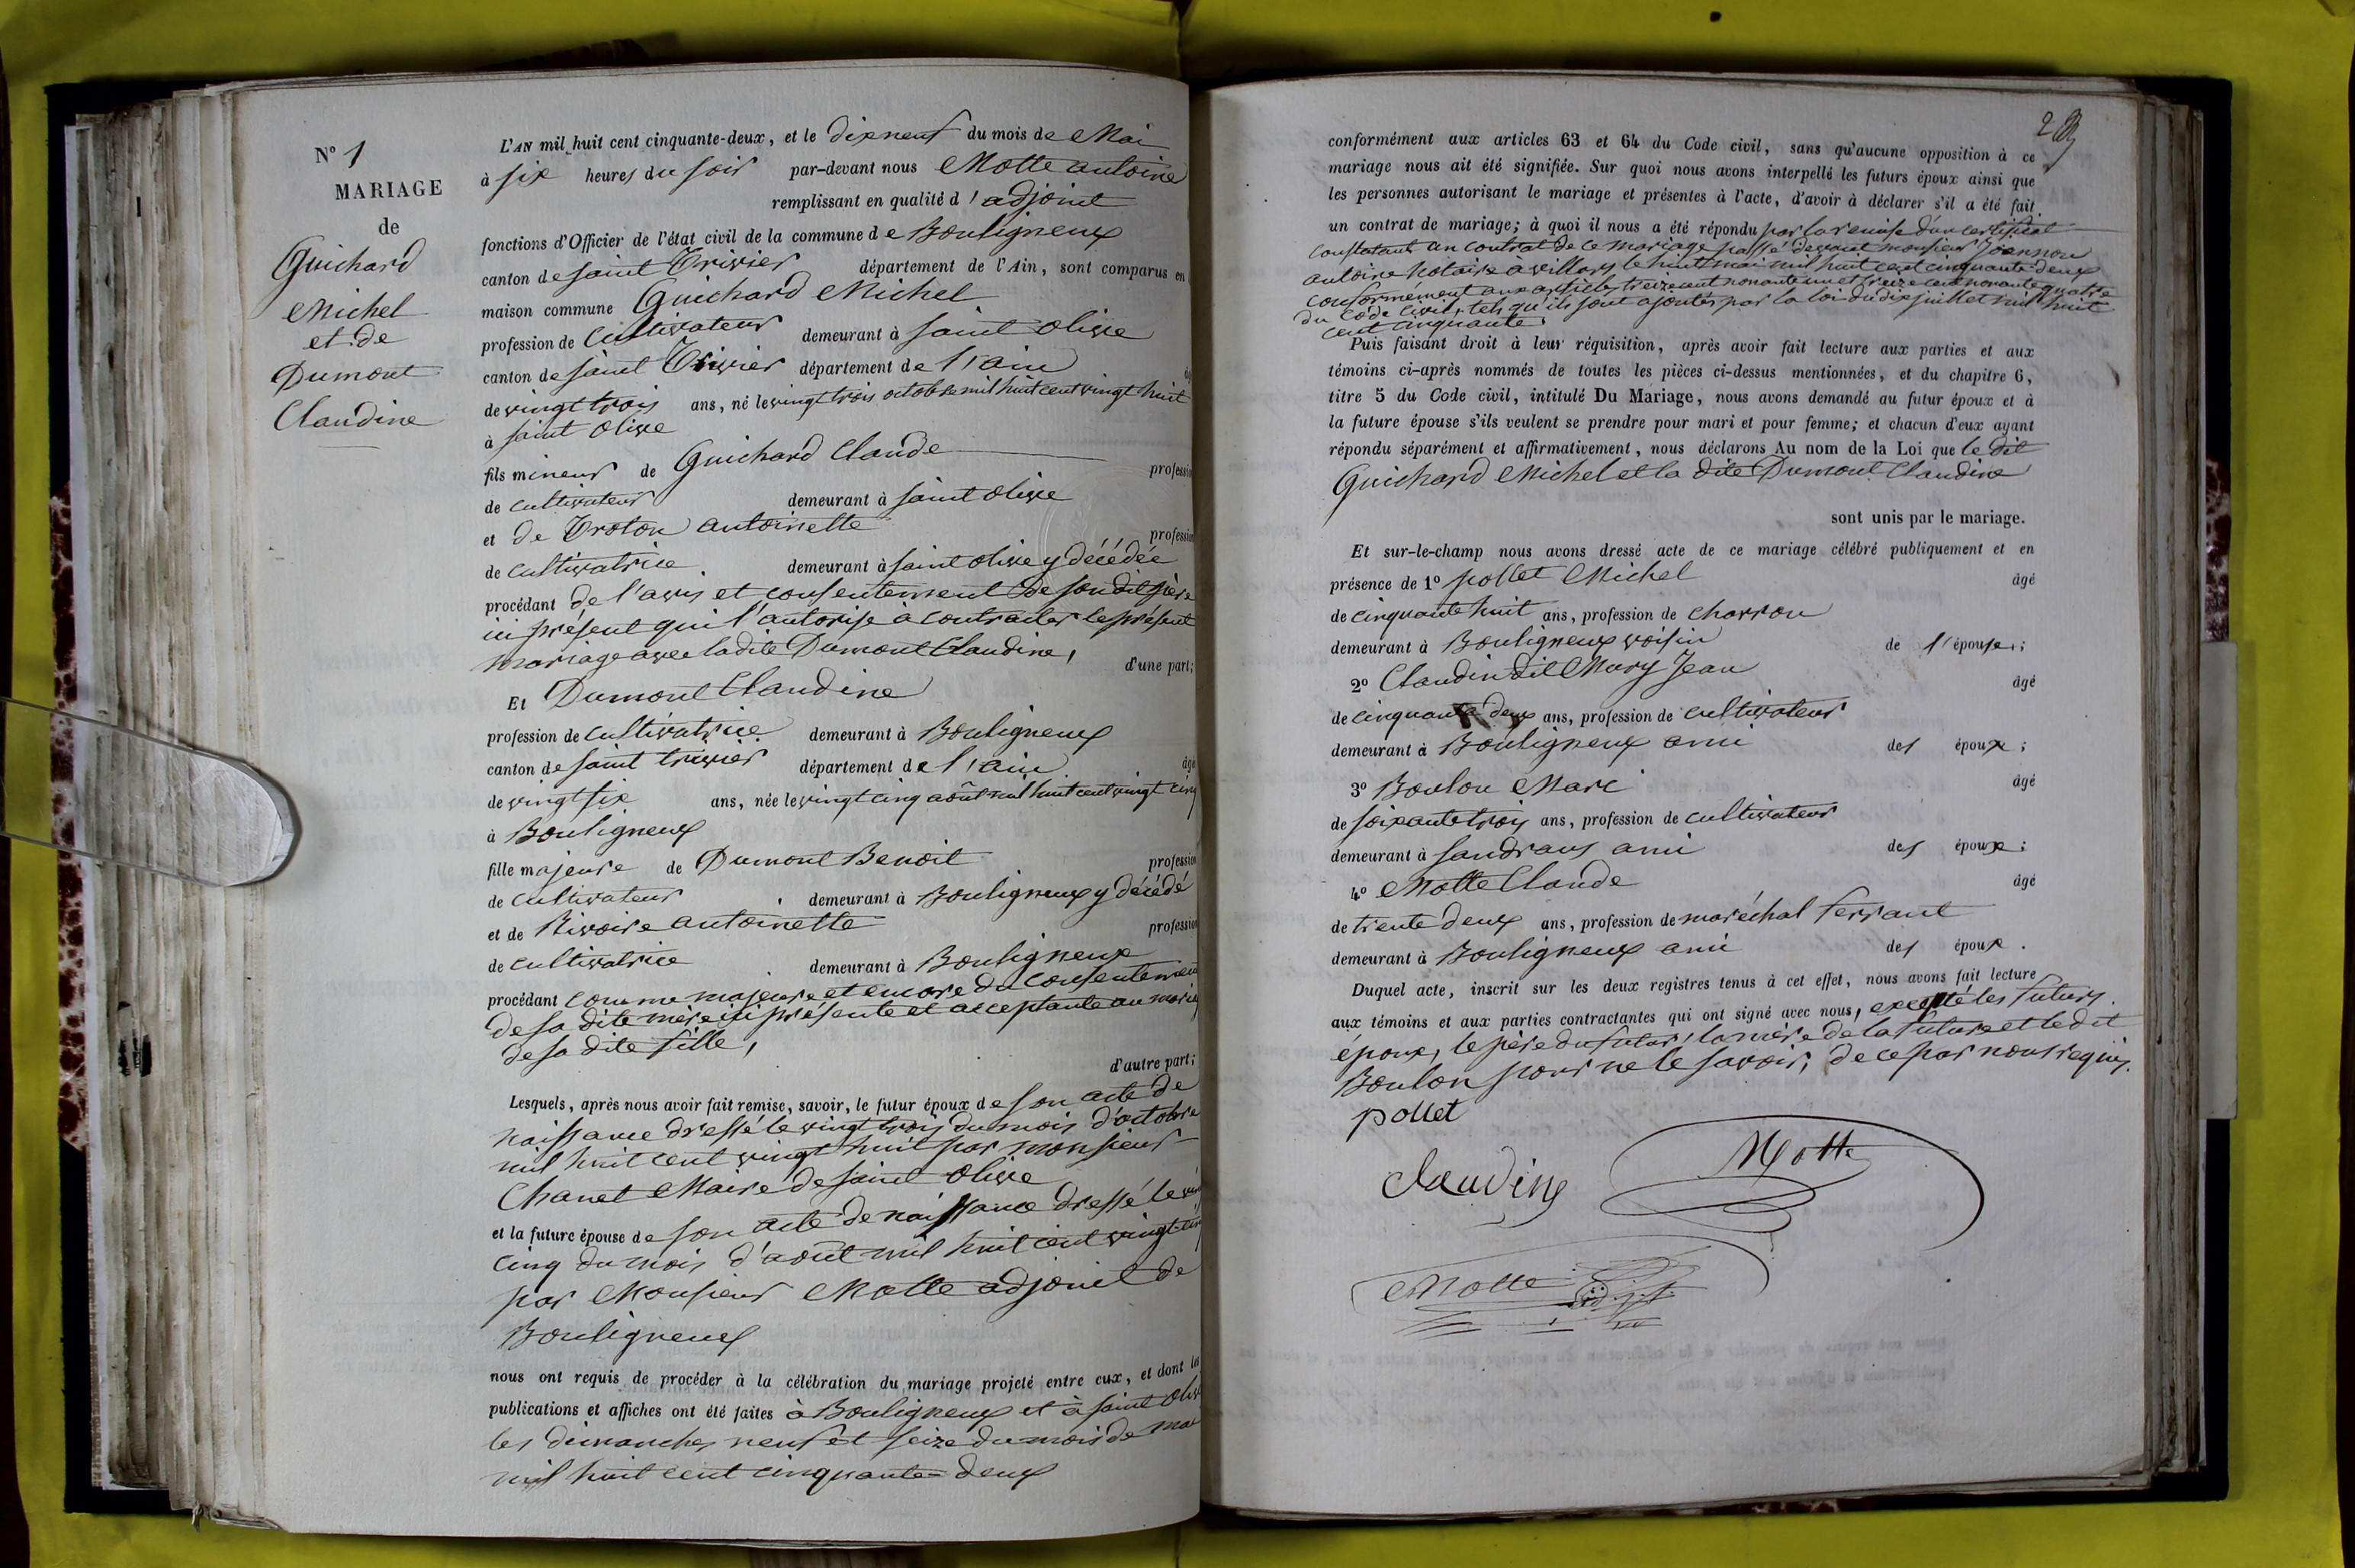 N° 1
MARIAGE
de
Guichard
Michel
et de
Dumont
Claudine
L'AN mil huit cent cinquante-deux, et le dixneuf du mois de Mai
à six heures du soir par-devant nous Motte antoine
remplissant en qualité d'adjoint
fonctions d'Officier de l'état civil de la commune de Bouligneux
canton de saint Trivier département de l'Ain, sont comparus en
maison commune Guichard Michel
profession de Cultivateur demeurant à saint olive
canton de saint Trivier département de l'ain âg
de vingt trois ans, né le vingt trois octobre mil huit cent vingt huit
à saint olive
fils mineur de Guichard Claude profession
de cultivateur demeurant à saint olive
et de Troton antoinette profession
de cultivatrice demeurant à saint olive y décédée
procédant de l'avis et consentement de son dit père
ici présent qui l'autorise à contracter le présent
mariage avec la dite Dumont Claudine, d'une part;
Et Dumont Claudine
profession de cultivatrice demeurant à Bouligneux
canton de saint trivier département de l'ain âgé
de vingt six ans, née le vingt cinq août mil huit cent vingt cinq
à Bouligneux
fille majeure de Dumont Benoit profession
de cultivateur demeurant à Bouligneux y décédé
et de Rivoire antoinette profession
de cultivatrice demeurant à Bouligneux
procédant comme majeure et encore du consentement
de sa dite mère ici présente et acceptante au mariage
de sa dite fille,
d'autre part;
Lesquels, après nous avoir fait remise, savoir, le futur époux de son acte de
naissance dressé le vingt trois du mois d'octobre
mil huit cent vingt huit par monsieur
Chanet Maire de saint olive
et la future épouse de son acte de naissance dressé le vingt
cinq du mois d'août mil huit cent vingt-cinq
par Monsieur Motte adjoint de
Bouligneux
nous ont requis de procéder à la célébration du mariage projeté entre eux, et dont les
publications et affiches ont été faites à Bouligneux et à saint oliv
les dimanches neuf et seize du mois de mai
mil huit cent cinquante-deux
conformément aux articles 63 et 64 du Code civil, sans qu'aucune opposition à ce
mariage nous ait été signifiée. Sur quoi nous avons interpellé les futurs époux ainsi que
les personnes autorisant le mariage et présentes à l'acte, d'avoir à déclarer s'il a été fait
un contrat de mariage; à quoi il nous a été répondu par la remise d'un certificat
constatant un contrat de ce mariage passé devant monsieur Joannon
antoine Notaire à villars le huit mai mil huit cent cinquante-deux
conformément aux articles treize cent nonante un et treize cent nonante quatre
du Code civil, tels qu'ils sont ajoutés par la loi du dix juillet mil huit
cent cinquante.
Puis faisant droit à leur réquisition, après avoir fait lecture aux parties et aux
témoins ci-après nommés de toutes les pièces ci-dessus mentionnées, et du chapitre 6,
titre 5 du Code civil, intitulé Du Mariage, nous avons demandé au futur époux et à
la future épouse s'ils veulent se prendre pour mari et pour femme; et chacun d'eux ayant
répondu séparément et affirmativement, nous déclarons Au nom de la Loi que le dit
Guichard Michel et la dite Dumont Claudine
sont unis par le mariage.
Et sur-le-champ nous avons dressé acte de ce mariage célébré publiquement et en
présence de 1° pollet Michel âgé
de cinquante huit ans, profession de charron
demeurant à Bouligneux voisin de l'épouse;
2° Claudin dit Mary Jean âgé
de cinquante deux ans, profession de cultivateur
demeurant à Bouligneux ami des époux;
3° Boulon Marc âgé
de soixante trois ans, profession de cultivateur
demeurant à sandrans ami des époux;
4° Motte Claude âgé
de trente deux ans, profession de maréchal ferrant
demeurant à Bouligneux ami des époux.
Duquel acte, inscrit sur les deux registres tenus à cet effet, nous avons fait lecture
aux témoins et aux parties contractantes qui ont signé avec nous, excepté les futurs
époux, le père du futur, la mère de la future et le dit
Boulon pour ne le savoir, de ce par nous requis.
pollet
Motte
Claudin
Motte